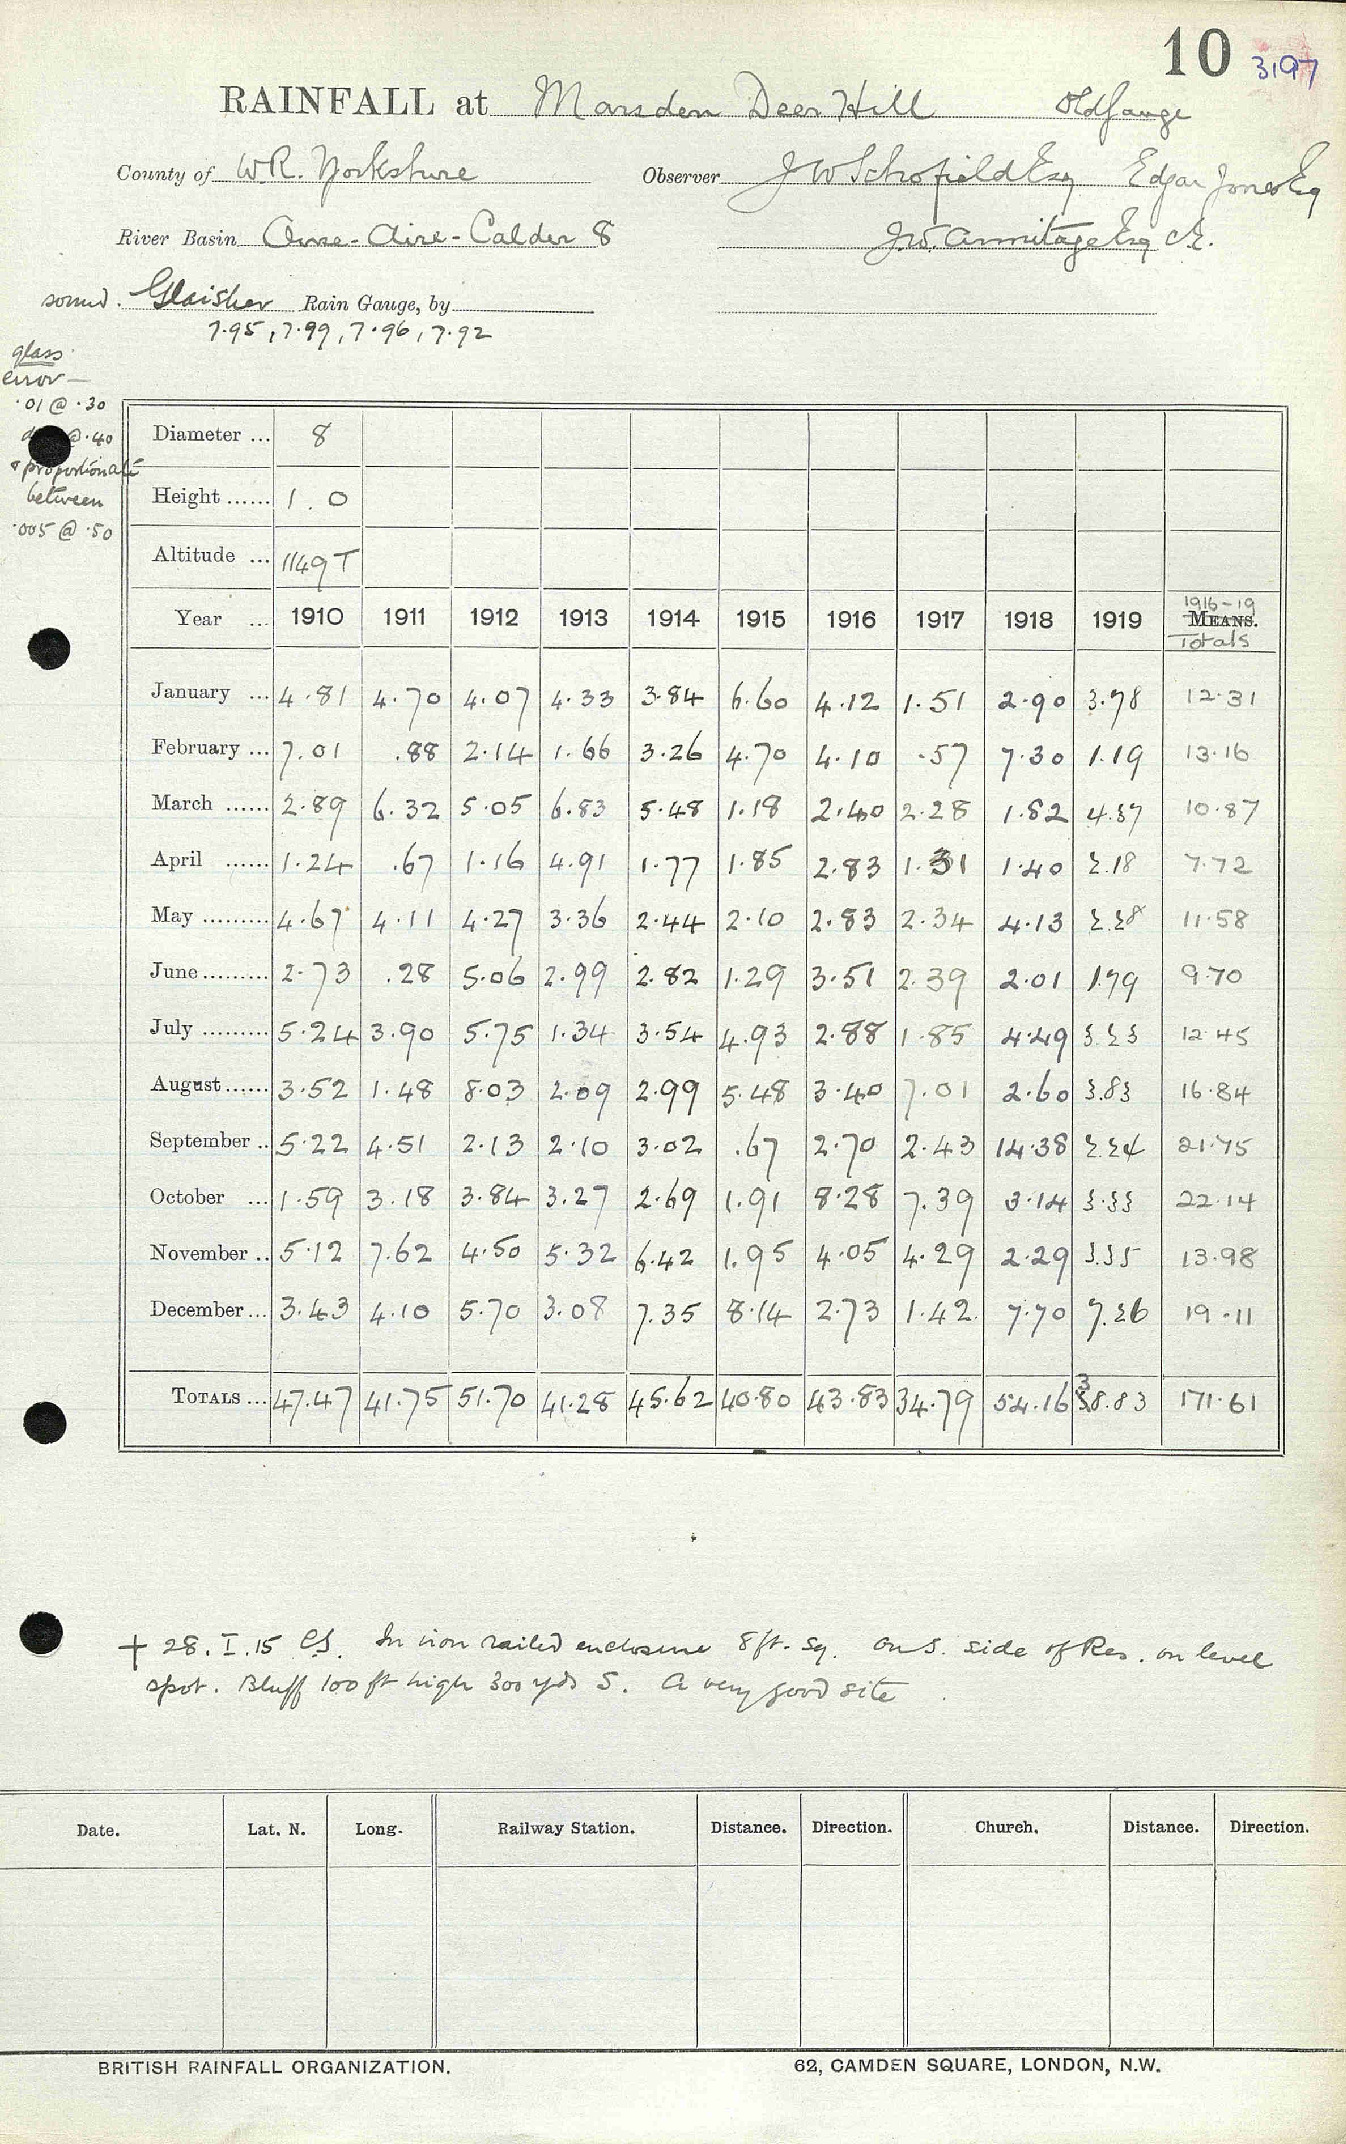 10 3197
RAINFALL at Marsden Deer Hill Old gauge
County of W.R. Yorkshire Observer J W Schofield Esq Edgar Jones Esq
River Basin Ouse-Aire-Calder 8 J.W. Armitage Esq C.E.
sound. Glaisher Rain Gauge, by
7.95, 7.99, 7.96, 7.92
glass
error —
.01 @ .30
@ .40
& proportionate
between
.005 @ .50
Diameter ... 8
Height ...... 1.0
Altitude ... 1149 T
Year ... 1910 1911 1912 1913 1914 1915 1916 1917 1918 1919 1916-19 MEANS. Totals
January ... 4.81 4.70 4.07 4.33 3.84 6.60 4.12 1.51 2.90 3.78 12.31
February ... 7.01 .88 2.14 1.66 3.26 4.70 4.10 .57 7.30 1.19 13.16
March ...... 2.89 6.32 5.05 6.83 5.48 1.18 2.40 2.28 1.82 4.37 10.87
April ...... 1.24 .67 1.16 4.91 1.77 1.85 2.83 1.31 1.40 2.18 7.72
May ......... 4.67 4.11 4.27 3.36 2.44 2.10 2.83 2.34 4.13 2.28 11.58
June ......... 2.73 .28 5.06 2.99 2.82 1.29 3.51 2.39 2.01 1.79 9.70
July ......... 5.24 3.90 5.75 1.34 3.54 4.93 2.88 1.85 4.49 3.23 12.45
August ...... 3.52 1.48 8.03 2.09 2.99 5.48 3.40 7.01 2.60 3.83 16.84
September .. 5.22 4.51 2.13 2.10 3.02 .67 2.70 2.43 14.38 2.24 21.75
October ... 1.59 3.18 3.84 3.27 2.69 1.91 8.28 7.39 3.14 3.33 22.14
November .. 5.12 7.62 4.50 5.32 6.42 1.95 4.05 4.29 2.29 3.35 13.98
December ... 3.43 4.10 5.70 3.08 7.35 8.14 2.73 1.42 7.70 7.26 19.11
TOTALS ... 47.47 41.75 51.70 41.28 45.62 40.80 43.83 34.79 54.16 38.83 171.61
+ 28.I.15 In iron railed enclosure 8 ft. sq. on S. side of Res. on level
spot. Bluff 100 ft high 300 yds S. A very good site
Date. Lat. N. Long. Railway Station. Distance. Direction. Church. Distance. Direction.
BRITISH RAINFALL ORGANIZATION. 62, CAMDEN SQUARE, LONDON, N.W.